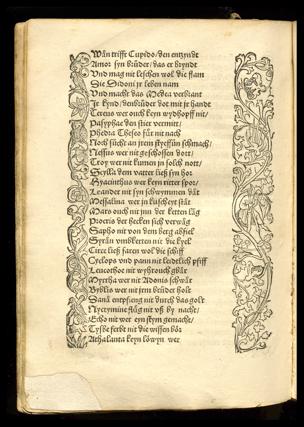 Wān trifft Cupido/den entzyndt
Amor syn brůder/das er bryndt
Vnd mag nit leschen wol die flam
Die Didoni jr leben nam
Vnd macht das Medea verbrant
Ir kynd/den brůder dot mit jr handt
Tereus wer ouch keyn wydhopff nit/
Pasyphae den stier vermitt/
Phedra Theseo für nit nach
Noch sůcht an jrem styeffsün schmach/
Nessus wer nit geschossen dott/
Troy wer nit kumen jn solch nott/
Scylla dem vatter ließ syn hor
Hyacinthus wer keyn ritter spor/
Leander nit syn schwymmen dät
Messalina wer jn küscheyt stät
Mars ouch nit jnn der ketten läg
Procris der hecken sich verwäg
Sapho nit von dem berg abfiel
Syrån vmbkerten nit die kyel
Circe ließ faren wol die schiff
Cyclops vnd pann nit leidtlich pfiff
Leucothoe nit wyhrouch gbär
Myrrha wer nit Adonis schwär
Byblis wer nit jrem brůder holt
Danä entpfieng nit durch das golt
Nyctymine flüg nit vß by nacht/
Echo nit wer eyn stym gemacht/
Tysbe ferbt nit die wissen bör
Athalanta keyn löwyn wer